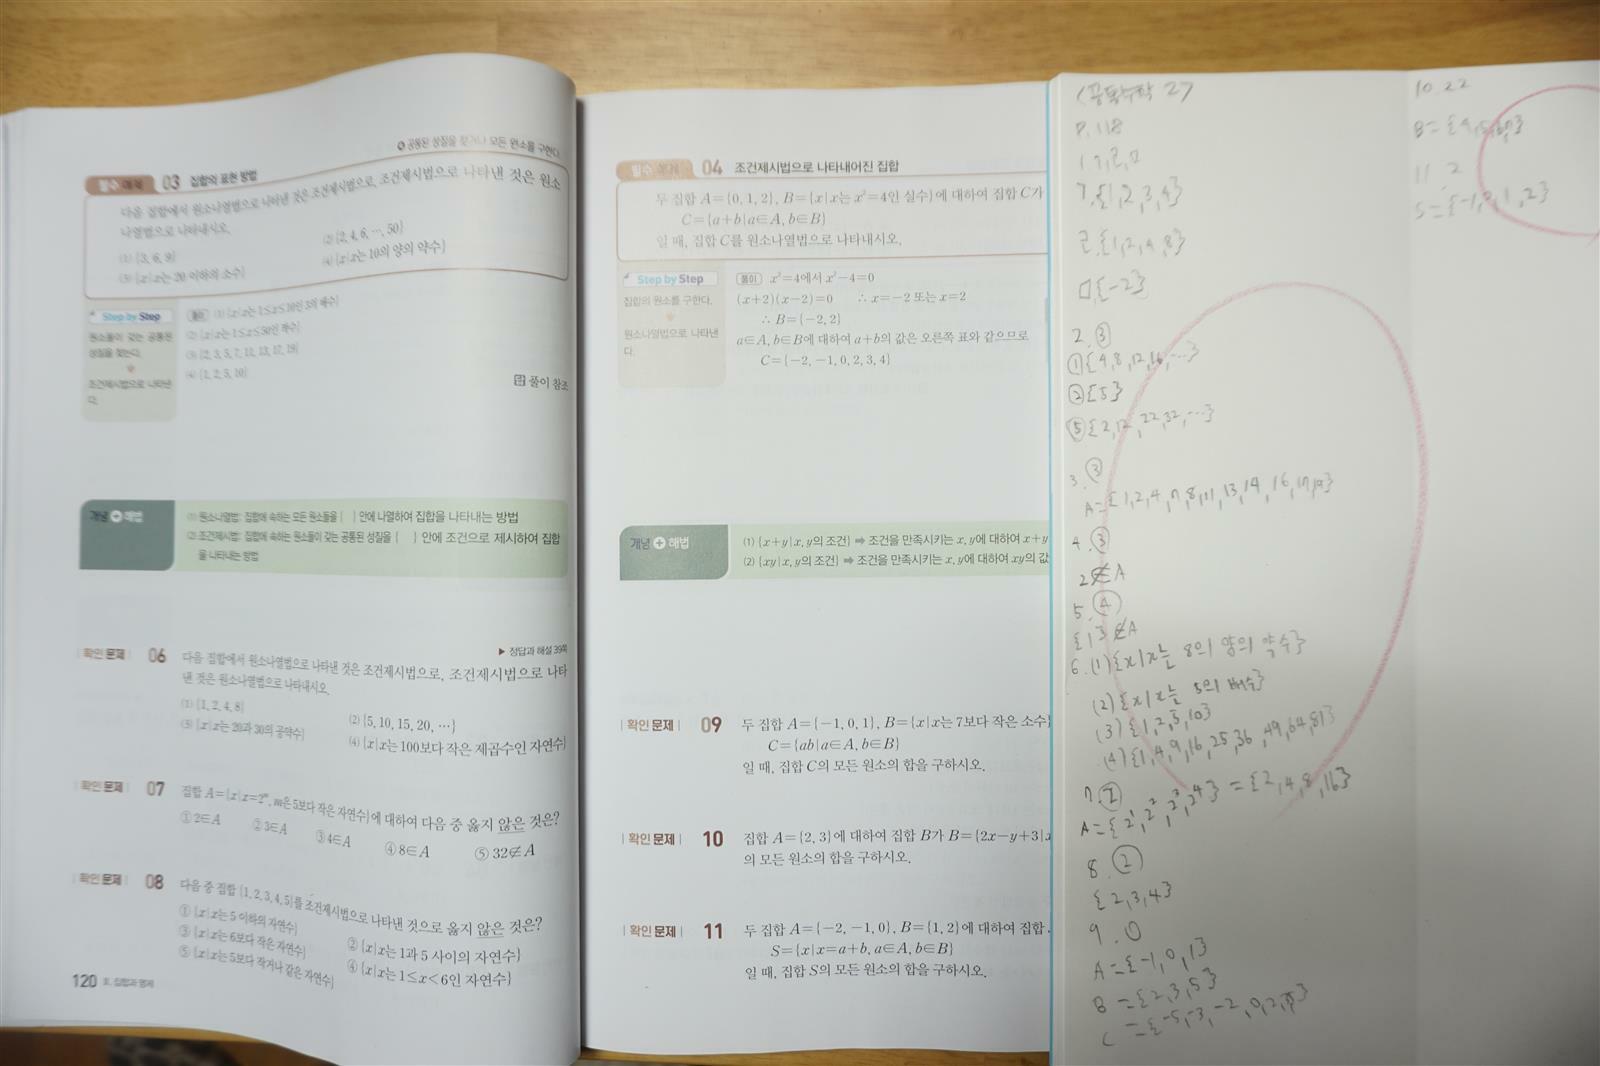 ● 공통된 성질을 찾거나 모든 원소를 구한다.
필수 예제 03 집합의 표현 방법
다음 집합에서 원소나열법으로 나타낸 것은 조건제시법으로, 조건제시법으로 나타낸 것은 원소
나열법으로 나타내시오.
(1) {3, 6, 9} (2) {2, 4, 6, …, 50}
(3) {x|x는 20 이하의 소수} (4) {x|x는 10의 양의 약수}
Step by Step
원소들이 갖는 공통된
성질을 찾는다.
조건제시법으로 나타낸
다.
풀이 (1) {x|x는 1≤x≤10인 3의 배수}
(2) {x|x는 1≤x≤50인 짝수}
(3) {2, 3, 5, 7, 11, 13, 17, 19}
(4) {1, 2, 5, 10}
답 풀이 참조
개념 + 해법
(1) 원소나열법: 집합에 속하는 모든 원소들을 { } 안에 나열하여 집합을 나타내는 방법
(2) 조건제시법: 집합에 속하는 원소들이 갖는 공통된 성질을 { } 안에 조건으로 제시하여 집합
을 나타내는 방법
▶ 정답과 해설 39쪽
확인 문제 06 다음 집합에서 원소나열법으로 나타낸 것은 조건제시법으로, 조건제시법으로 나타
낸 것은 원소나열법으로 나타내시오.
(1) {1, 2, 4, 8} (2) {5, 10, 15, 20, …}
(3) {x|x는 20과 30의 공약수} (4) {x|x는 100보다 작은 제곱수인 자연수}
확인 문제 07 집합 A={x|x=2ᵐ, m은 5보다 작은 자연수}에 대하여 다음 중 옳지 않은 것은?
① 2∈A ② 3∈A ③ 4∈A ④ 8∈A ⑤ 32∉A
확인 문제 08 다음 중 집합 {1, 2, 3, 4, 5}를 조건제시법으로 나타낸 것으로 옳지 않은 것은?
① {x|x는 5 이하의 자연수} ② {x|x는 1과 5 사이의 자연수}
③ {x|x는 6보다 작은 자연수} ④ {x|x는 1≤x<6인 자연수}
⑤ {x|x는 5보다 작거나 같은 자연수}
120 Ⅱ. 집합과 명제
필수 예제 04 조건제시법으로 나타내어진 집합
두 집합 A={0, 1, 2}, B={x|x는 x²=4인 실수}에 대하여 집합 C가
C={a+b|a∈A, b∈B}
일 때, 집합 C를 원소나열법으로 나타내시오.
Step by Step
집합의 원소를 구한다.
원소나열법으로 나타낸
다.
풀이 x²=4에서 x²-4=0
(x+2)(x-2)=0 ∴ x=-2 또는 x=2
∴ B={-2, 2}
a∈A, b∈B에 대하여 a+b의 값은 오른쪽 표와 같으므로
C={-2, -1, 0, 2, 3, 4}
개념 + 해법
(1) {x+y|x, y의 조건} ➡ 조건을 만족시키는 x, y에 대하여 x+y
(2) {xy|x, y의 조건} ➡ 조건을 만족시키는 x, y에 대하여 xy의 값
확인 문제 09 두 집합 A={-1, 0, 1}, B={x|x는 7보다 작은 소수}
C={ab|a∈A, b∈B}
일 때, 집합 C의 모든 원소의 합을 구하시오.
확인 문제 10 집합 A={2, 3}에 대하여 집합 B가 B={2x-y+3|x
의 모든 원소의 합을 구하시오.
확인 문제 11 두 집합 A={-2, -1, 0}, B={1, 2}에 대하여 집합
S={x|x=a+b, a∈A, b∈B}
일 때, 집합 S의 모든 원소의 합을 구하시오.
<공통수학 2>
P.118
1 ㄱ, ㄹ, ㅁ
ㄱ.{1,2,3,4}
ㄹ.{1,2,4,8}
ㅁ.{-2}
2. ③
①{4,8,12,16,…}
②{5}
⑤{2,12,22,32,…}
3. ③
A={1,2,4,7,8,11,13,14,16,17,19}
4. ③
2∉A
5. ④
{1}∉A
6. (1){x|x는 8의 양의 약수}
(2){x|x는 5의 배수}
(3){1,2,5,10}
(4){1,4,9,16,25,36,49,64,81}
7. ②
A={2¹,2²,2³,2⁴}={2,4,8,16}
8. ②
{2,3,4}
9. 0
A={-1,0,1}
B={2,3,5}
C={-5,-3,-2,0,2,3,5}
10. 22
B={4,5,6,7}
11. 2
S={-1,0,1,2}